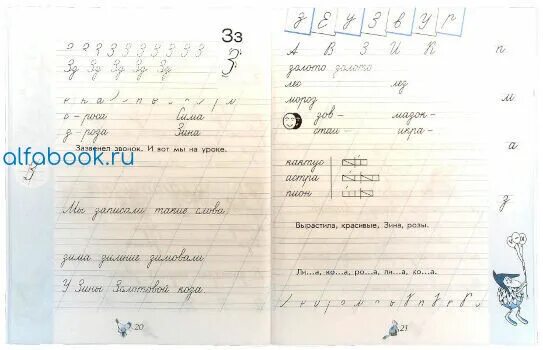 Зз
З З З З З З З З З З З
Зд Зд Зд Зд Зд
с - роса Сима
д - роза Зина
Зазвенел звонок. И вот мы на уроке.
alfabook.ru
Мы записали такие слова.
зима зимние зимовали
У Зины Золотовой коза
20
З Е У З в У г
А В З И К п
золото золото
лес лед
мороз м
дов - мазок -
стаи - икра -
кактус
астра
пион з
Вырастила, красивые, Зина, розы.
Ли...а, ко...а, ро...а, ли...а, ко...а.
21